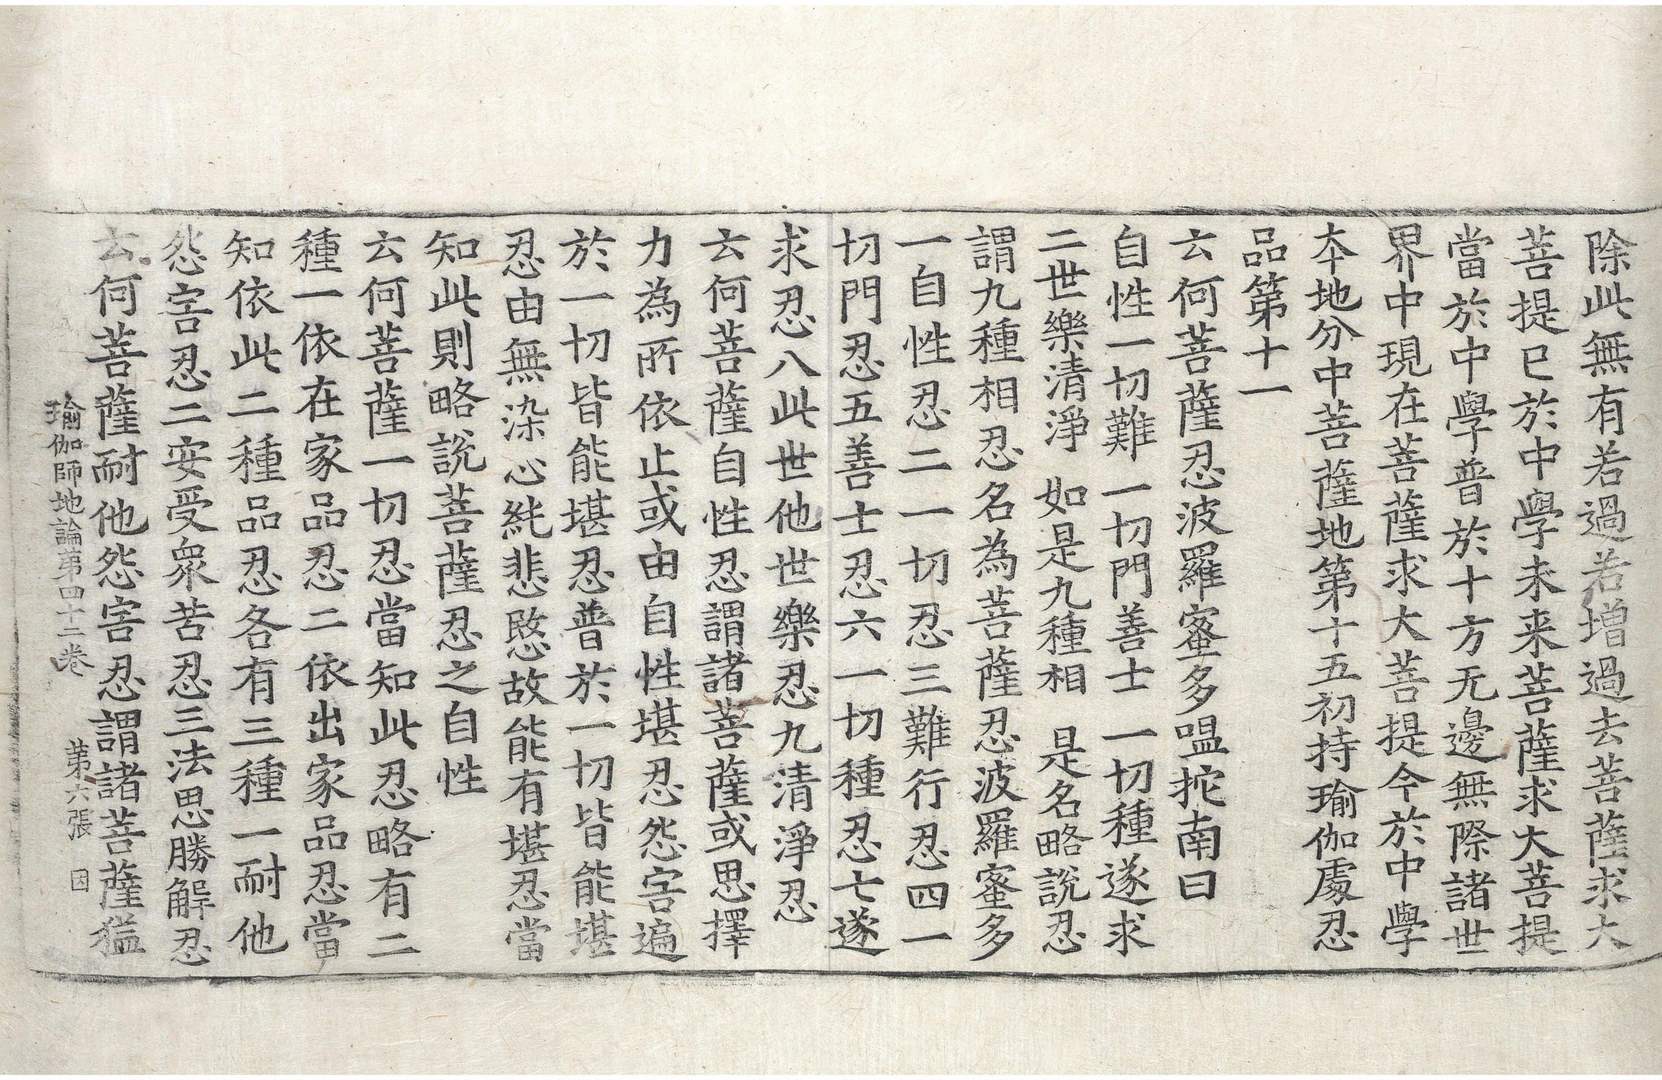 除此無有若過若增過去菩薩求大
菩提已於中學未来菩薩求大菩提
當於中學普於十方无邊無際諸世
界中現在菩薩求大菩提今於中學
本地分中菩薩地第十五初持瑜伽處忍
品第十一
云何菩薩忍波羅蜜多嗢拕南曰
自性一切難 一切門善士 一切種遂求
二世樂清淨 如是九種相 是名略說忍
謂九種相忍名為菩薩忍波羅蜜多
一自性忍二一切忍三難行忍四一
切門忍五善士忍六一切種忍七遂
求忍八此世他世樂忍九清淨忍
云何菩薩自性忍謂諸菩薩或思擇
力為所依止或由自性堪忍怨害遍
於一切皆能堪忍普於一切皆能堪
忍由無染心純悲愍故能有堪忍當
知此則略說菩薩忍之自性
云何菩薩一切忍當知此忍略有二
種一依在家品忍二依出家品忍當
知依此二種品忍各有三種一耐他
怨害忍二安受衆苦忍三法思勝解忍
云何菩薩耐他怨害忍謂諸菩薩猛
瑜伽師地論第四十二卷 第六張 因